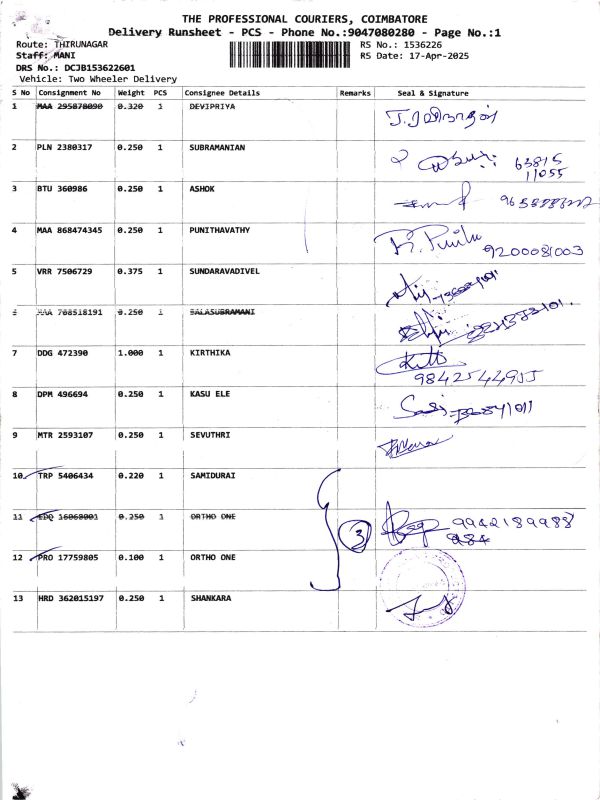 THE PROFESSIONAL COURIERS, COIMBATORE
Delivery Runsheet - PCS - Phone No.:9047080280 - Page No.:1
Route: THIRUNAGAR RS No.: 1536226
Staff: MANI RS Date: 17-Apr-2025
DRS No.: DCJB153622601
Vehicle: Two Wheeler Delivery
S No Consignment No Weight PCS Consignee Details Remarks Seal & Signature
1 MAA 295878090 0.320 1 DEVIPRIYA
2 PLN 2380317 0.250 1 SUBRAMANIAN 63815
11055
3 BTU 360986 0.250 1 ASHOK
4 MAA 868474345 0.250 1 PUNITHAVATHY 9200081003
5 VRR 7506729 0.375 1 SUNDARAVADIVEL
MAA 708518191 0.250 1 BALASUBRAMANI
7 DDG 472390 1.000 1 KIRTHIKA
8 DPM 496694 0.250 1 KASU ELE
9 MTR 2593107 0.250 1 SEVUTHRI
10 TRP 5406434 0.220 1 SAMIDURAI
11 EDQ 16068001 0.250 1 ORTHO ONE 3 9942189988
984
12 PRO 17759805 0.100 1 ORTHO ONE
13 HRD 362015197 0.250 1 SHANKARA